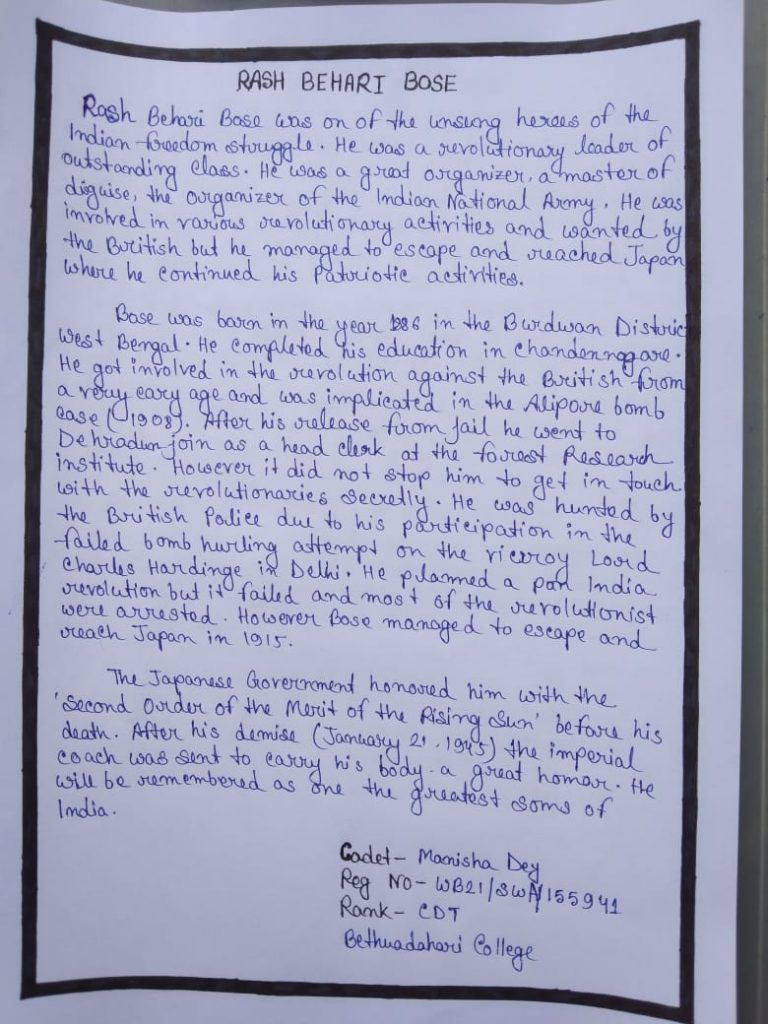 RASH BEHARI BOSE
Rash Behari Bose was on of the unsung heroes of the
Indian freedom struggle. He was a revolutionary leader of
outstanding class. He was a great organizer, a master of
diguise, the organizer of the Indian National Army. He was
involved in various revolutionary activities and wanted by
the British but he managed to escape and reached Japan
where he continued his Patriotic activities.
Bose was born in the year 1886 in the Burdwan District
West Bengal. He completed his education in Chandennagare.
He got involved in the revolution against the British from
a very eary age and was implicated in the Alipore bomb
case (1908). After his release from jail he went to
Dehradun join as a head clerk at the forest Research
institute. However it did not stop him to get in touch
with the revolutionaries secretly. He was hunted by
the British Police due to his participation in the
failed bomb hurling attempt on the viceroy Lord
Charles Hardinge in Delhi. He planned a pan India
revolution but it failed and most of the revolutionist
were arrested. However Bose managed to escape and
reach Japan in 1915.
The Japanese Government honored him with the
'Second Order of the Merit of the Rising Sun' before his
death. After his demise (January 21, 1945) the imperial
coach was sent to carry his body. a great honor. He
will be remembered as one the greatest sons of
India.
Cadet- Manisha Dey
Reg NO- WB21/SWA/155941
Rank- CDT
Bethuadahari College